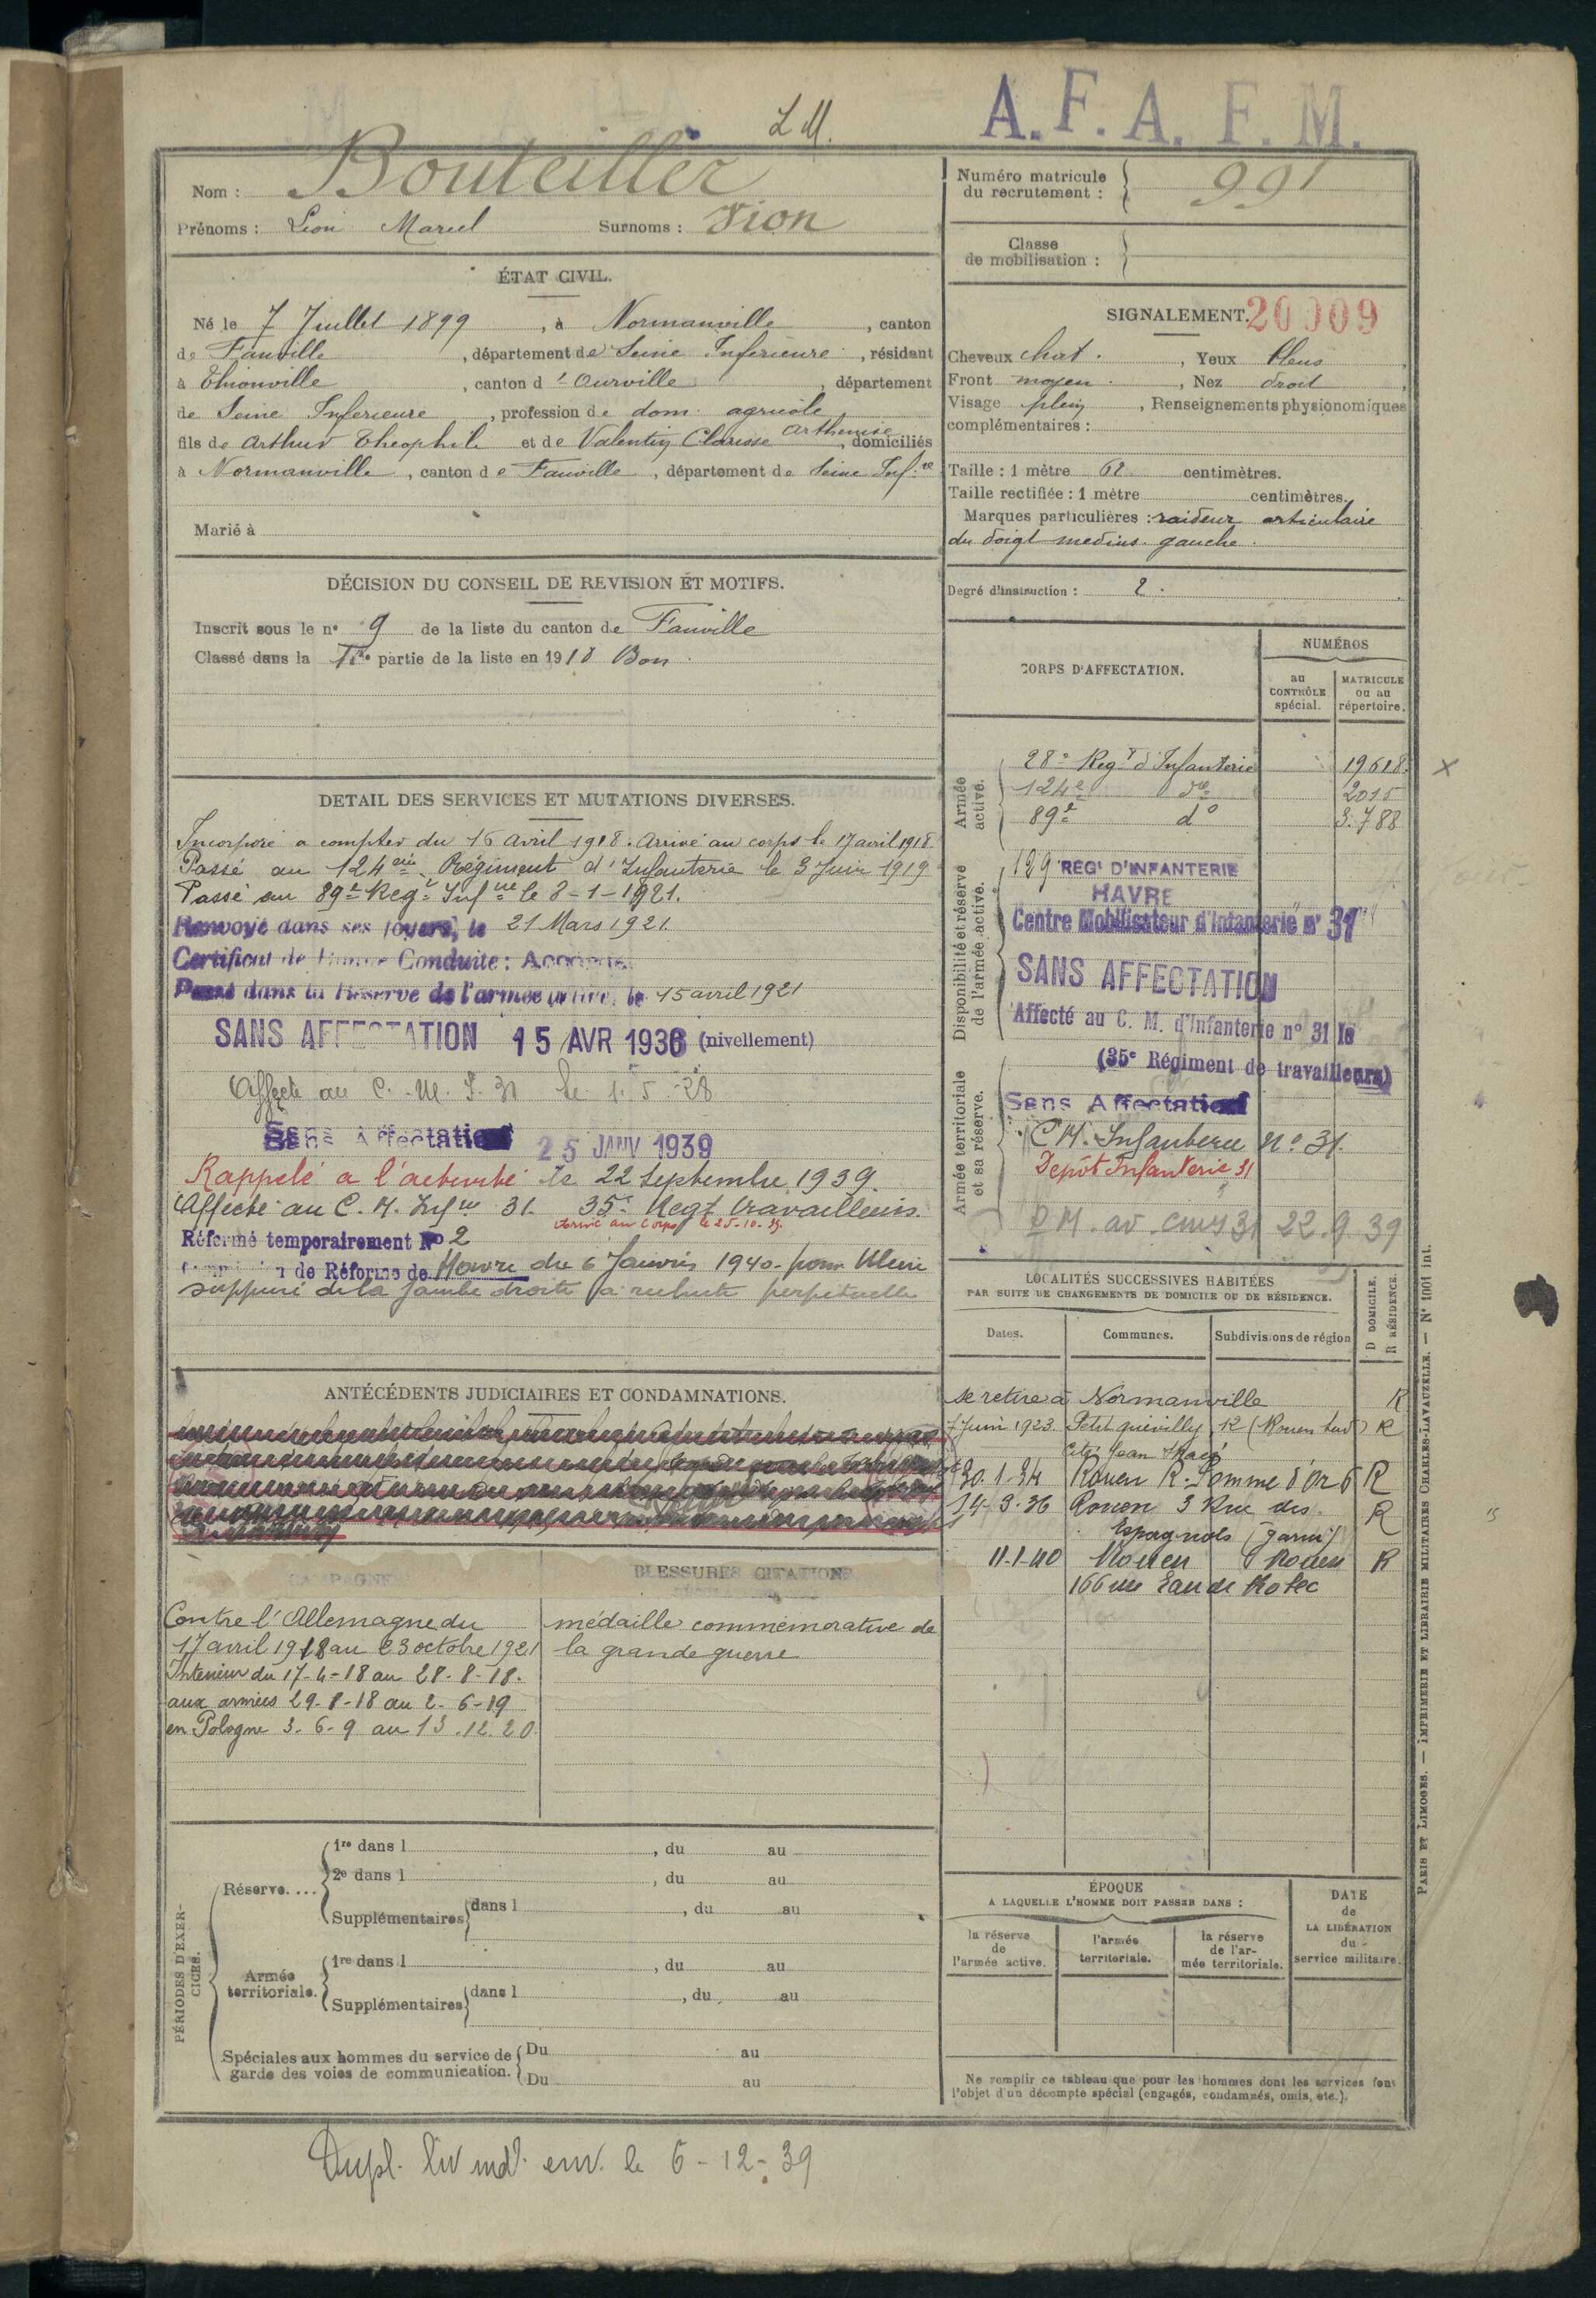 L M.
A. F. A. F. M.
Nom : Bouteiller
Prénoms : Léon Marcel Surnoms : Vion
ÉTAT CIVIL.
Né le 7 Juillet 1899, à Normanville, canton
de Fauville, département de Seine Inférieure, résidant
à Thionville, canton d'Ourville, département
de Seine Inférieure, profession de dom. agricole
fils de Arthur Théophile et de Valentin Clarisse Arthemise, domiciliés
à Normanville, canton de Fauville, département de Seine Inf.re
Marié à
DÉCISION DU CONSEIL DE REVISION ET MOTIFS.
Inscrit sous le n° 9 de la liste du canton de Fauville
Classé dans la 1re partie de la liste en 1918 Bon.
DÉTAIL DES SERVICES ET MUTATIONS DIVERSES.
Incorporé a compter du 16 avril 1918. Arrivé au corps le 17 avril 1918.
Passé au 124eme Régiment d'Infanterie le 3 Juin 1919
Passé au 89e Regt Infrie le 8-1-1921.
Renvoyé dans ses foyers, le 21 Mars 1921
Certificat de Bonne Conduite : Accordé
Passé dans la Réserve de l'armée active, le 15 avril 1921
SANS AFFECTATION 15 AVR 1936 (nivellement)
Affecté au C. M. I. 31 le 1. 5 28
Sans Affectation 25 JANV 1939
Rappelé a l'activité le 22 septembre 1939.
Affecté au C. M. Infrie 31. 35e Regt travailleurs.
Arrivé au Corps le 25-10-39.
Réformé temporairement N° 2
Commission de Réforme de Havre du 6 Janvier 1940 - pour Ulcère
suppuré de la jambe droite à rechute perpétuelle
ANTÉCÉDENTS JUDICIAIRES ET CONDAMNATIONS.
CAMPAGNES
Contre l'Allemagne du
17 avril 1918 au 23 octobre 1921
Intérieur du 17-4-18 au 28-8-18.
aux armées 29-8-18 au 2-6-19
en Pologne 3-6-9 au 13.12.20.
BLESSURES CITATIONS
médaille commémorative de
la grande guerre
PÉRIODES D'EXERCICES.
Réserve....
1re dans l , du au
2e dans l , du au
Supplémentaires dans l , du au
Armée territoriale.
1re dans l , du au
Supplémentaires dans l , du au
Spéciales aux hommes du service de
garde des voies de communication.
Du au
Du au
Numéro matricule
du recrutement : 991
Classe
de mobilisation :
SIGNALEMENT. 20009
Cheveux chat., Yeux bleus
Front moyen., Nez droit
Visage plein, Renseignements physionomiques
complémentaires :
Taille : 1 mètre 62 centimètres.
Taille rectifiée : 1 mètre centimètres.
Marques particulières : raideur articulaire
du doigt medius gauche.
Degré d'instruction : 2.
CORPS D'AFFECTATION.
NUMÉROS
au CONTRÔLE spécial.
MATRICULE ou au répertoire.
Armée active.
28e Regt d'Infanterie 19618. X
124e do 2015
89e do 3.788
Disponibilité et réserve de l'armée active.
129 REGt D'INFANTERIE
HAVRE
Centre Mobilisateur d'Infanterie n° 31
SANS AFFECTATION
Affecté au C. M. d'Infanterie n° 31 le
(35e Régiment de travailleurs)
Armée territoriale et sa réserve.
Sans Affectation
C M. Infanterie N°. 31.
Dépôt Infanterie 31
22.9 39
LOCALITÉS SUCCESSIVES HABITÉES
PAR SUITE DE CHANGEMENTS DE DOMICILE OU DE RÉSIDENCE.
Dates. Communes. Subdivisions de région D DOMICILE. R RÉSIDENCE.
se retire à Normanville R
7 Juin 1923. Petit quevilly R (Rouen Sud) R
Cité Jean Macé
30.1.34 Rouen R. Pomme d'Or 6 R
14-9-36 Rouen 3 Rue des R
Espagnols (garni)
11-1-40 Rouen Rouen R
166 rue Eau de Robec
ÉPOQUE
A LAQUELLE L'HOMME DOIT PASSER DANS :
la réserve de l'armée active.
l'armée territoriale.
la réserve de l'armée territoriale.
DATE de LA LIBÉRATION du service militaire.
Ne remplir ce tableau que pour les hommes dont les services font
l'objet d'un décompte spécial (engagés, condamnés, omis, etc.).
PARIS ET LIMOGES. — IMPRIMERIE ET LIBRAIRIE MILITAIRES CHARLES-LAVAUZELLE. — N° 1001 int.
Dupl. liv mdl. env. le 6-12-39